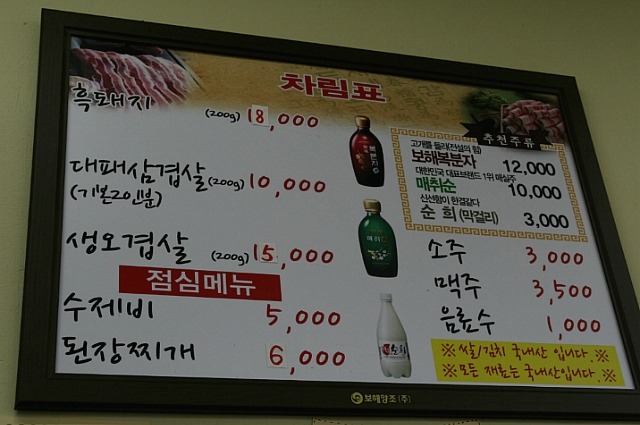 차림표
흑돼지 (200g) 18,000
대패삼겹살 (200g) 10,000
(기본2인분)
생오겹살 (200g) 15,000
점심메뉴
수제비 5,000
된장찌개 6,000
추천주류
보해복분자 12,000
대한민국 대표브랜드 1위 매실주
매취순 10,000
신선함이 한결같다
순희 (막걸리) 3,000
소주 3,000
맥주 3,500
음료수 1,000
※쌀/김치 국내산 입니다.※
※모든 재료는 국내산입니다.※
보해양조(주)